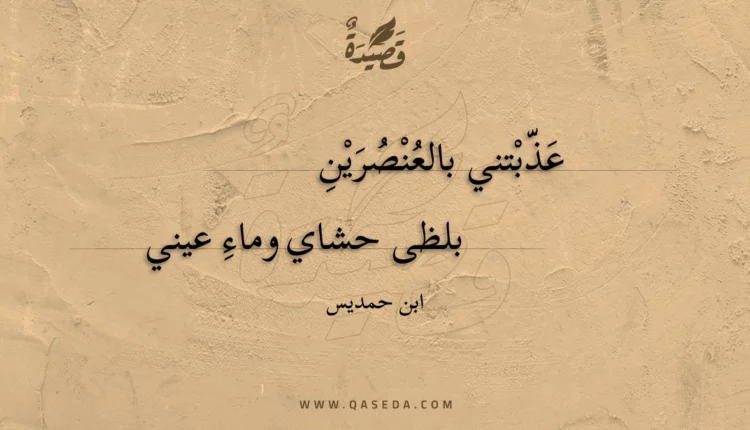 قَصِيدَةٌ
عَذّبْتني بالعُنْصُرَيْنِ
بلظى حشاي وماءِ عيني
ابن حمديس
WWW.QASEDA.COM